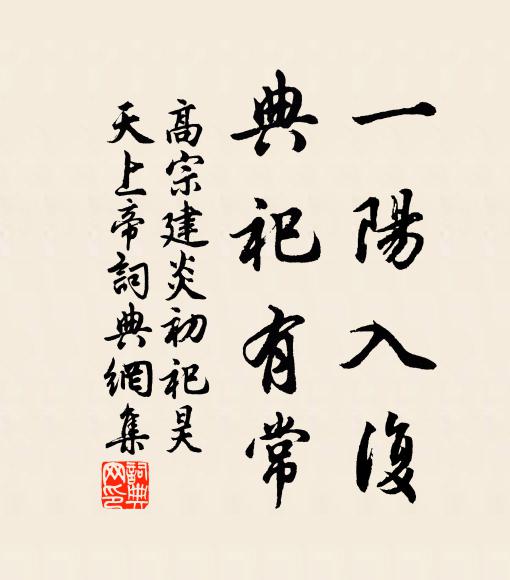 一陽入復
典祀有常
高宗建炎初祀昊
天上帝詞典網集
詞典
网印